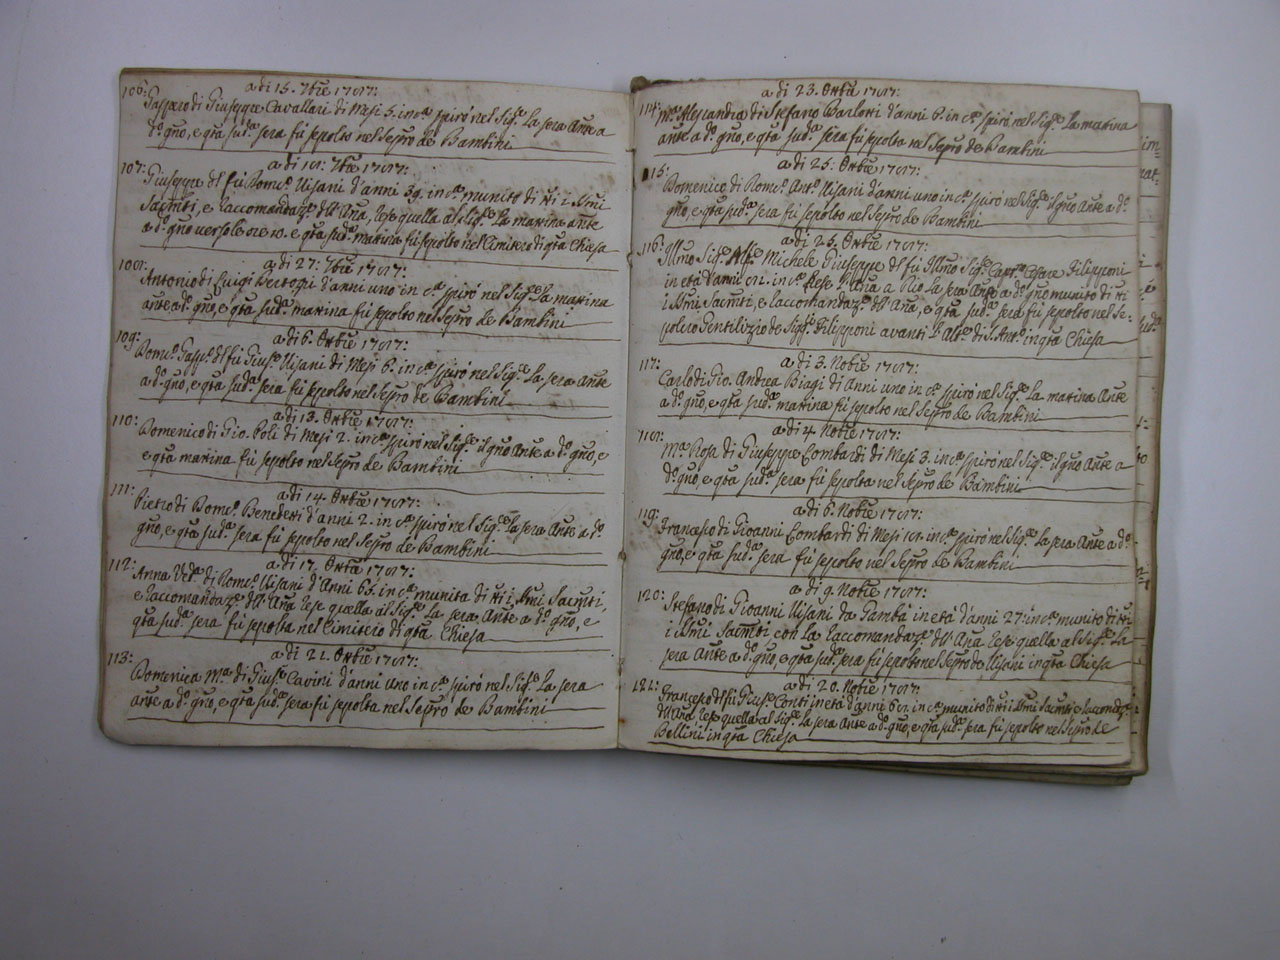 106: a di 15. 7bre 1787:
Gasparo di Giuseppe Cavallari di Mesi 5. in cª spirò nel Sigre La sera Ante a
dº gno, e qta sudª sera fù sepolto nel Sepro de Bambini
107: a di 18. 7bre 1787:
Giuseppe del fù Domcº Uisani d'anni 39. in cª munito di tti i SSmi
Sacmti, e raccomandaze dell' Ana, rese quella al Sigre La matina ante
a dº gno verso le ore 10. e qta sudª matina fù sepolto nel Cimiteo di qta Chiesa
108: a di 27: 7bre 1787:
Antonio di Luigi Bertozzi d'anni uno in cª spirò nel Sigre La matina
ante a dº gno, e qta sudª matina fù sepolto nel Sepro de Bambini
109: a di 6. Ottbre 1787:
Domcº Gaspe del fù Giuse Uisani di Mesi 6. in cª spirò nel Sigre La sera Ante
a dº gno, e qta sudª sera fù sepolto nel Sepro de Bambini
110: a di 13. Ottbre 1787:
Domenico di Gio. Poli di Mesi 2. in cª spirò nel Sigre il gno Ante a dº gno, e
e qta matina fù sepolto nel Sepro de Bambini
111: a di 14. Ottbre 1787:
Pietro di Domcº Benedetti d'anni 2. in cª spirò nel Sigre La sera Ante a dº
gno, e qta sudª sera fù sepolto nel Sepro de Bambini
112: a di 17. Ottbre 1787:
Anna Vedª di Domcº Uisani d'Anni 65. in cª munita di tti i SSmi Sacmti,
e raccomandaze dell' Ana rese quella al Sigre La sera Ante a dº gno, e
qta sudª sera fù sepolta nel Cimiteio di qta Chiesa
113: a di 21. Ottbre 1787:
Domenica Mª di Giuse Cavini d'anni Uno in cª spirò nel Sigre La sera
ante a dº gno, e qta sudª sera fù sepolta nel Sepro de Bambini
114: a di 23. Ottbre 1787:
Mª Alessandra di Stefano Barlotti d'anni 6. in cª spirò nel Sigre La matina
ante a dº gno, e qta sudª sera fù sepolta nel Sepro de Bambini
115: a di 25. Ottbre 1787:
Domenico di Domcº Antº Uisani d'anni uno in cª spirò nel Sigre il gno Ante a dº
gno, e qta sudª sera fù sepolto nel Sepro de Bambini
116: a di 25. Ottbre 1787:
Illmo Sigre Michele Giuseppe del fù Illmo Sigre Captº Cesare Filipponi
in età d'anni 82. in cª rese l'Ana a Dio La sera Ante a dº gno munito di tti
i SSmi Sacmti, e raccomandaze dell' Ana, e qta sudª sera fù sepolto nel Se-
polcro Gentilizio de Sigri Filipponi avanti l'Alte di S. Antº in qta Chiesa
117: a di 3. Nobre 1787:
Carlo di Gio. Andrea Biagi di Anni uno in cª spirò nel Sigre La matina Ante
a dº gno, e qta sudª matina fù sepolto nel Sepro de Bambini
118: a di 4. Nobre 1787:
Mª Rosa di Giuseppe Lombardi di Mesi 3. in cª spirò nel Sigre il gno Ante a
dº gno e qta sudª sera fù sepolta nel Sepro de Bambini
119: a di 6. Nobre 1787:
Francesco di Gioanni Lombardi di Mesi 18. in cª spirò nel Sigre La sera Ante a dº
gno, e qta sudª sera fù sepolto nel Sepro de Bambini
120: a di 9. Nobre 1787:
Stefano di Gioanni Uisani da Gamba in età d'anni 27: in cª munito di tti
i SSmi Sacmti con La raccomandaze dell' Ana rese quella al Sigre La
sera Ante a dº gno, e qta sudª sera fù sepolto nel Sepro de Uisani in qta Chiesa
121: a di 20. Nobre 1787:
Francesco del fù Giuse Conti in età d'anni 68. in cª munito di tti i SSmi Sacmti e raccondze
dell' Ana rese quella al Sigre La sera Ante a dº gno, e qta sudª sera fù sepolto nel Sepro de
Bellini in qta Chiesa